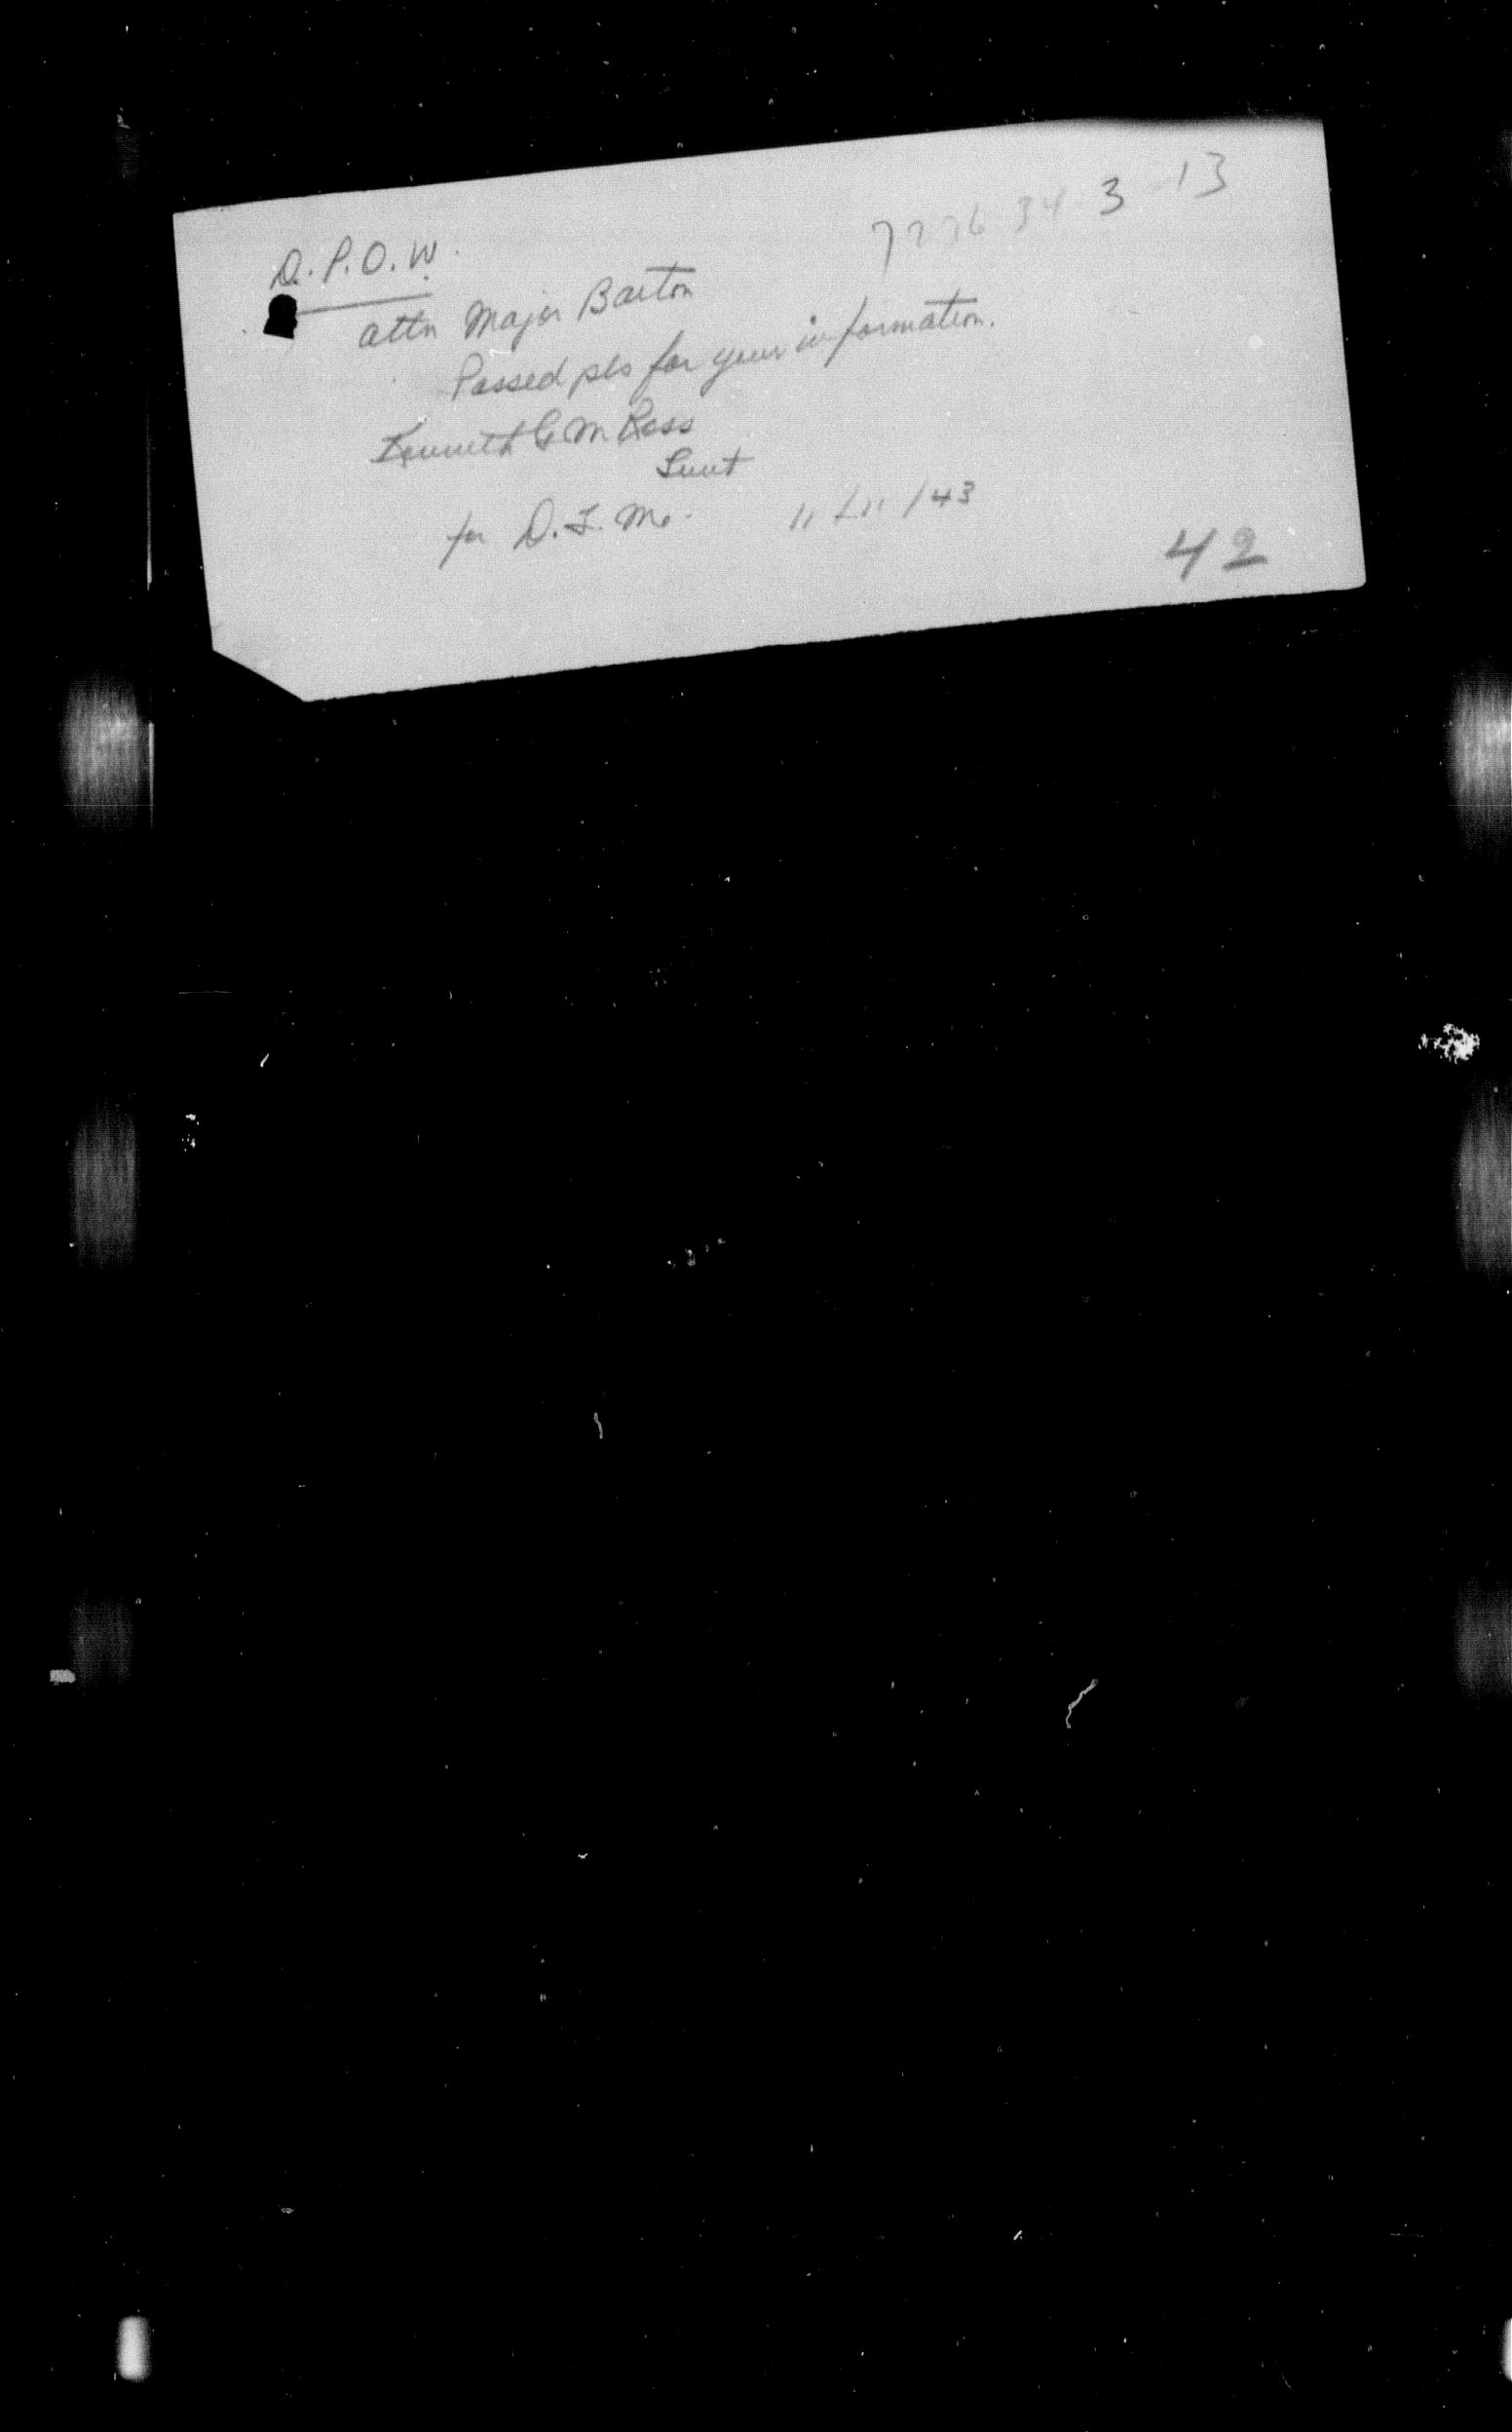 7236-34-3-13
D.P.O.W.
attn Major Barton
Passed pls for your information.
Kenneth G M Ross
Lieut
for D.F.M.
11/11/43
42